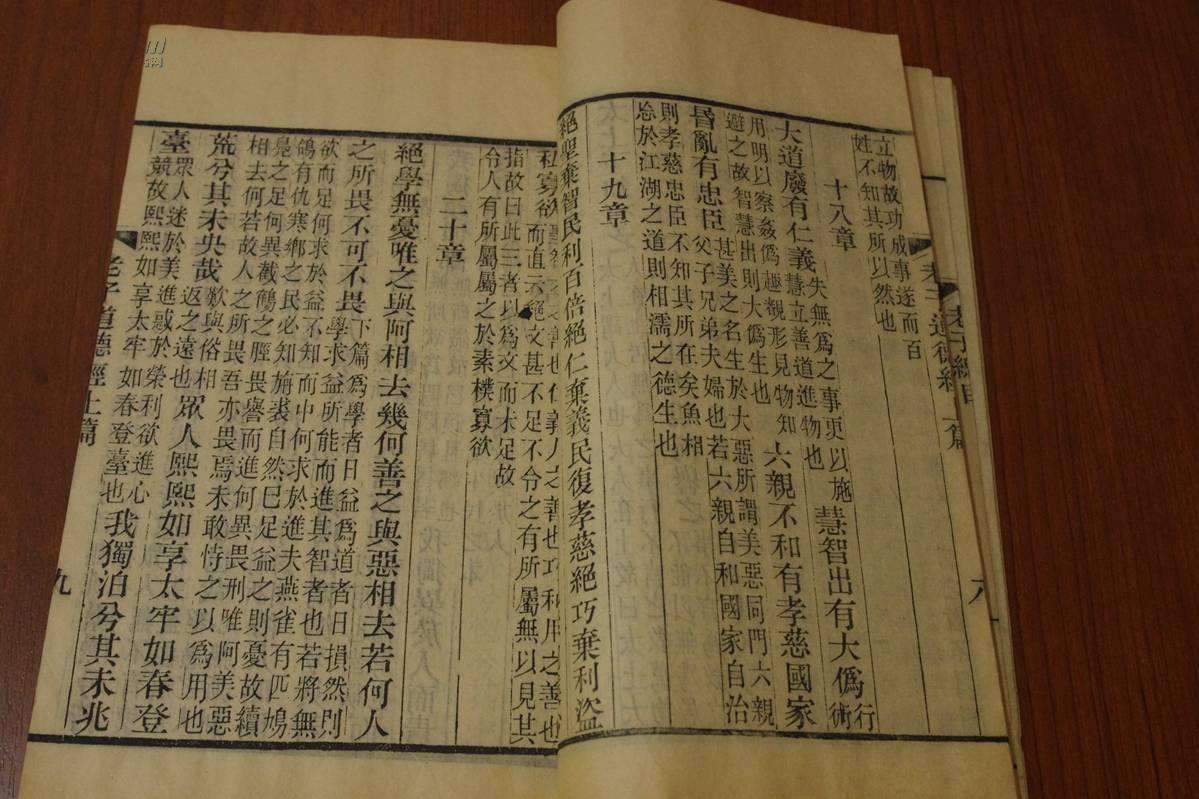 老子經目
老子道德經 篇
八
立物故功成事遂而百
姓不知其所以然也
十八章
大道廢有仁義
失無為之事更以施
慧立善道進物也
慧智出有大偽
行術
用明以察姦偽趣覩形見物知
避之故智慧出則大偽生也
六親不和有孝慈國家
昬亂有忠臣
甚美之名生於大惡所謂美惡同門六親
父子兄弟夫婦也若六親自和國家自治
則孝慈忠臣不知其所在矣魚相
忘於江湖之道則相濡之德生也
十九章
絕聖棄智民利百倍絕仁棄義民復孝慈絕巧棄利盜
私寡欲
之善也仁義人之善也巧利用之善也
而直云絕文甚不足不令之有所屬無以見其
指故曰此三者以為文而未足故
令人有所屬屬之於素樸寡欲
二十章
絕學無憂唯之與阿相去幾何善之與惡相去若何人
之所畏不可不畏
下篇為學者日益為道者日損然則
學求益所能而進其智者也若將無
欲而足何求於益不知而中何求於進夫燕雀有匹鳩
鴿有仇寒鄉之民必知旃裘自然已足益之則憂故續
鳧之足何異截鶴之脛畏譽而進何異畏刑唯阿美惡
相去何若故人之所畏吾亦畏焉未敢恃之以為用也
荒兮其未央哉
歎與俗相
返之遠也
衆人熙熙如享太牢如春登
臺
衆人迷於美進惑於榮利欲進心
競故熙熙如享太牢如春登臺也
我獨泊兮其未兆
老子道德經上篇
九